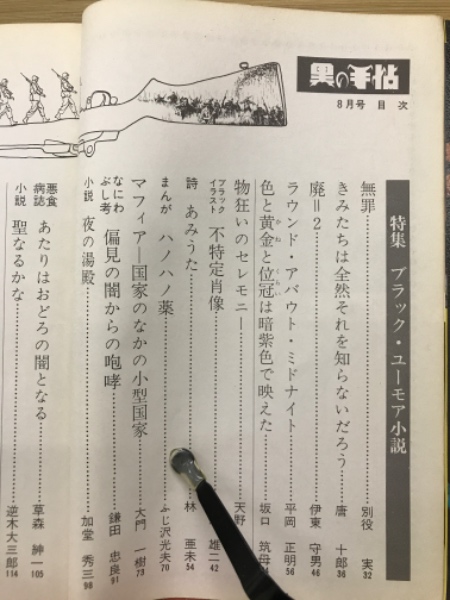 黒の手帖
8月号 目次
特集 ブラック・ユーモア小説
無罪 別役 実 32
きみたちは全然それを知らないだろう 唐 十郎 36
廃=2 伊東 守男 46
ラウンド・アバウト・ミドナイト 平岡 正明 56
色と黄金と位冠は暗紫色で映えた 坂口 筑母
かね くらい
物狂いのセレモニー 天野
ブラックイラスト 不特定肖像 雄二 42
詩 あみうた 林 亜未 54
まんが ハノハノ薬 ふじ沢光夫 70
マフィア―国家のなかの小型国家 大門 一樹 73
なにわぶし考 偏見の闇からの咆哮 鎌田 忠良 91
小説 夜の湯殿 加堂 秀三 98
悪食病誌 あたりはおどろの闇となる 草森 紳一 105
小説 聖なるかな 逆木大三郎 114